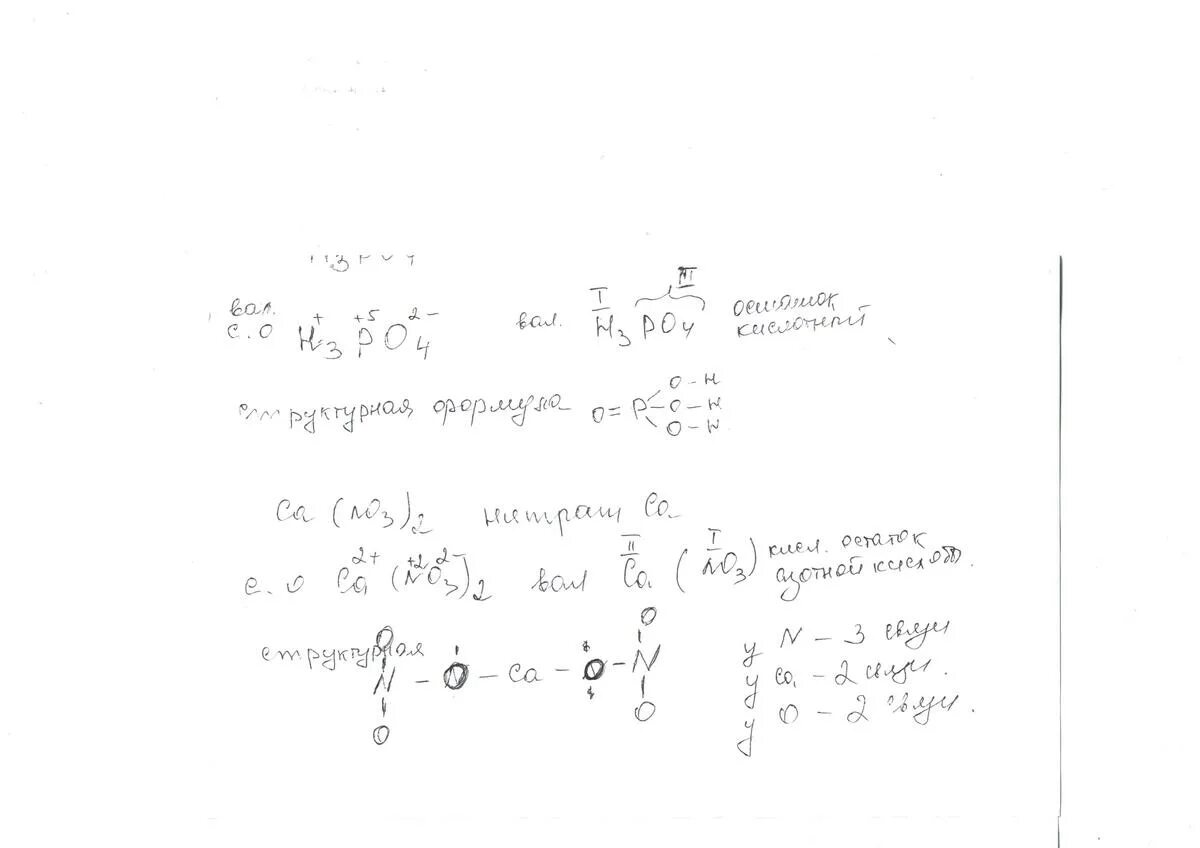 H3PO4
вал.
с.о H3 + P +5 O4 2- вал. I H3 PO4 III остаток кислотный
структурная формула O=P
O-H
-O-H
O-H
Ca(NO3)2 нитрат Ca
с.о Ca 2+ (N +2 O3 2-)2 вал II Ca (I NO3) кисл. остаток азотной кислоты.
структурная
O O
N - O - Ca - O - N
O O
у N - 3 связи
у Ca - 2 связи.
у O - 2 связи.